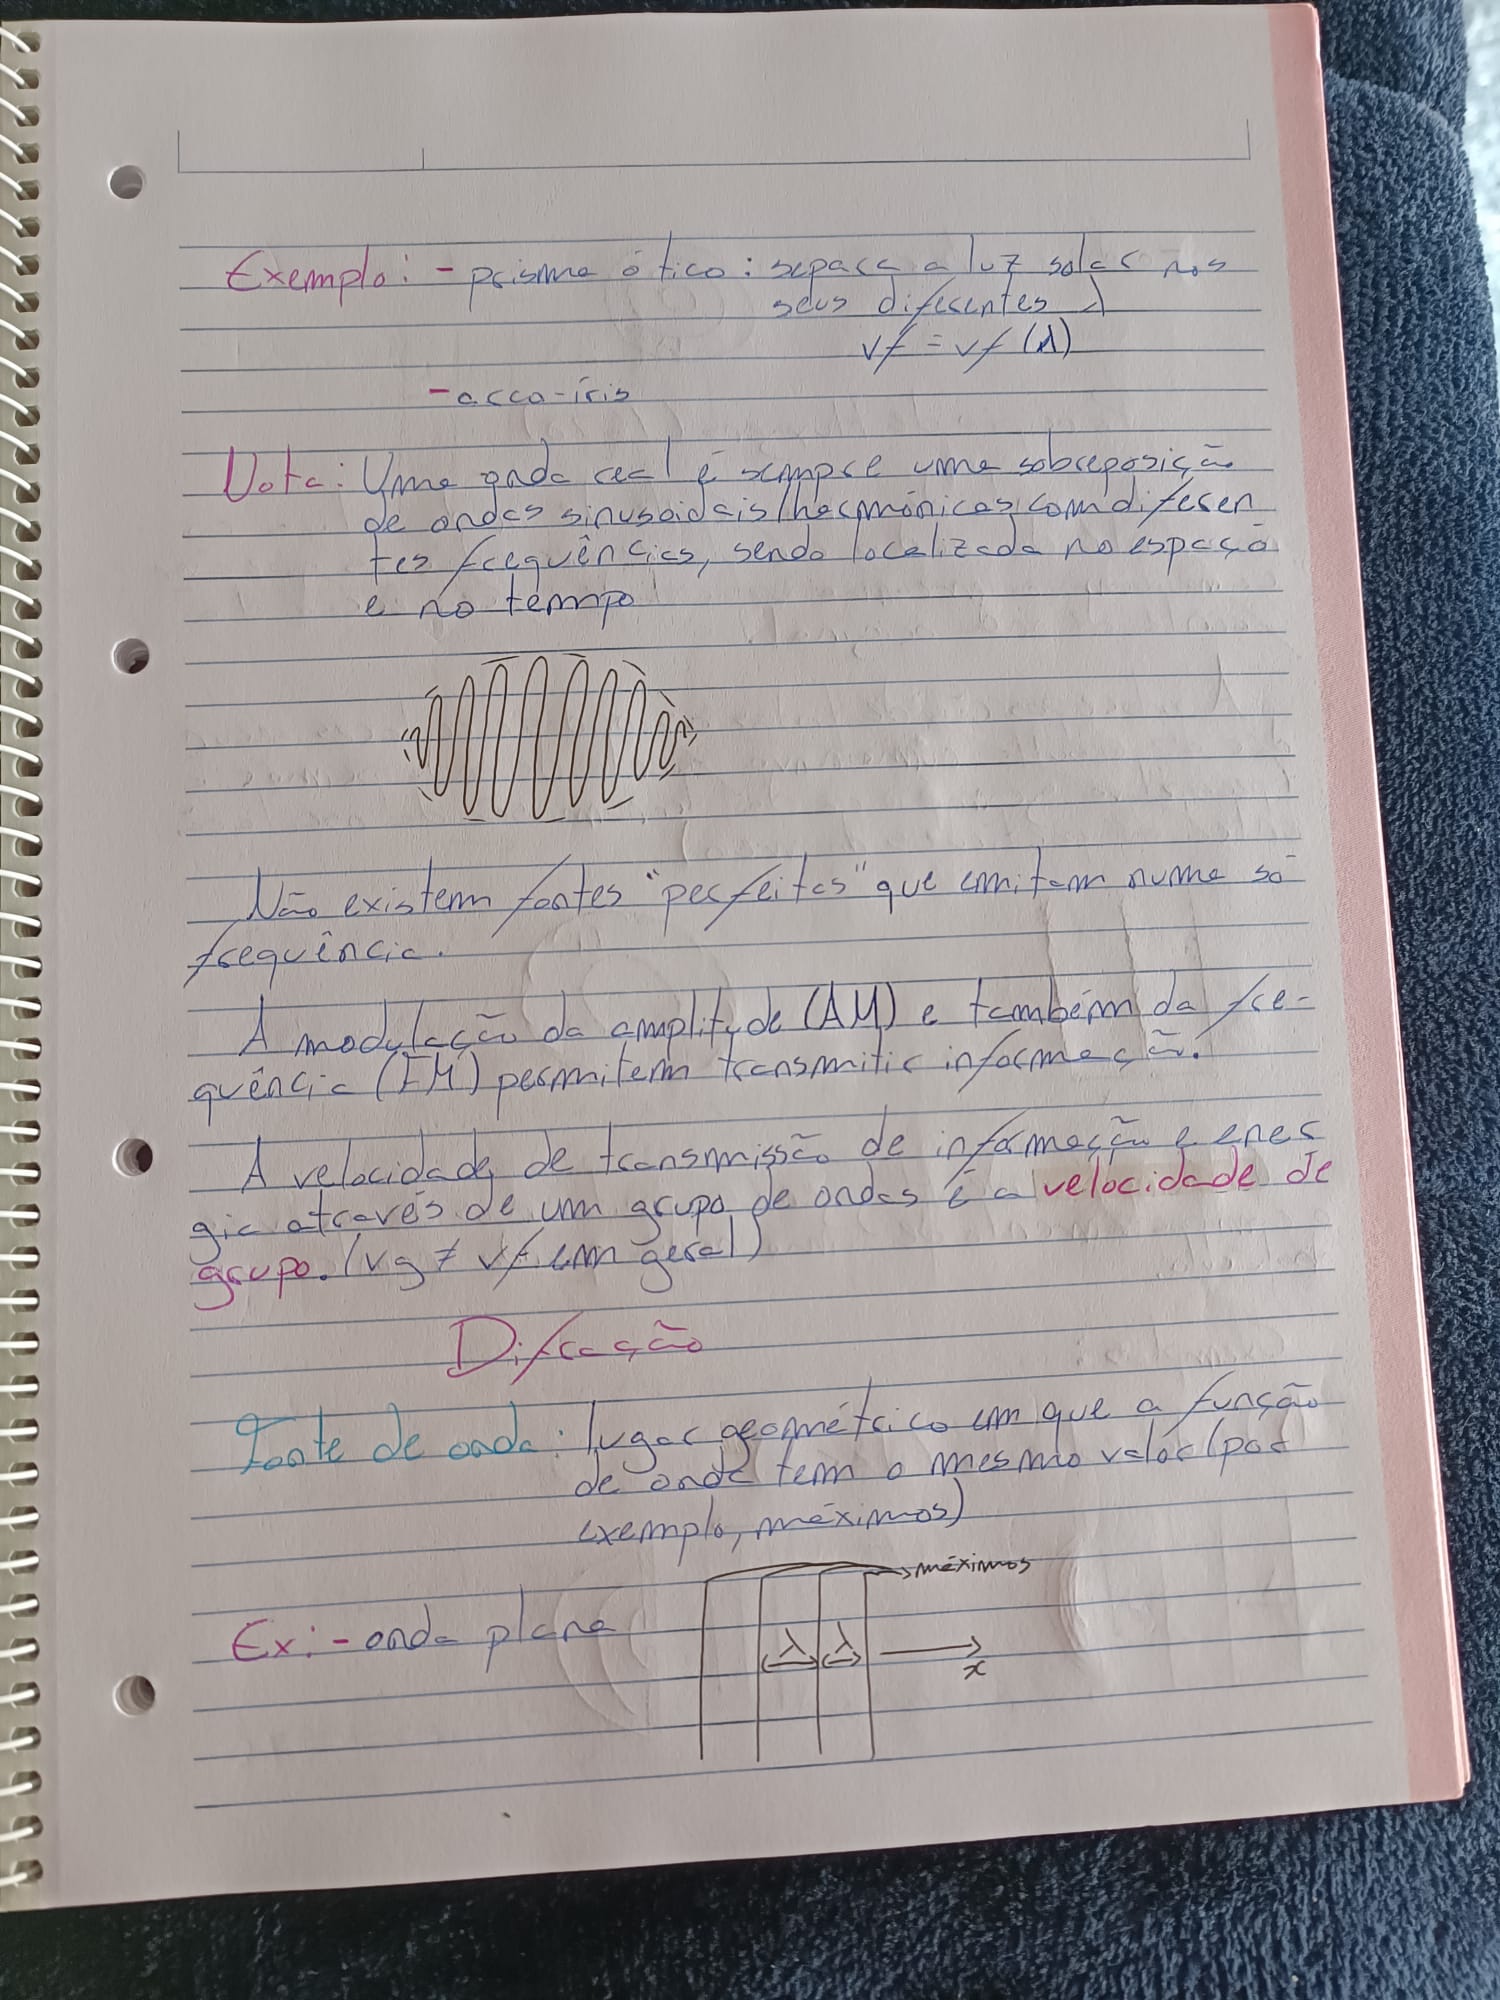 Exemplo: - prisma ótico: separa a luz solar nos
seus diferentes λ
vf = vf (λ)
- arco-íris
Nota: Uma onda real é sempre uma sobreposição
de ondas sinusoidais/harmónicas com diferen
tes frequências, sendo localizada no espaço
e no tempo
Não existem fontes "perfeitas" que emitam numa só
frequência.
A modulação da amplitude (AM) e também da fre-
quência (FM) permitem transmitir informação.
A velocidade de transmissão de informação e ener
gia através de um grupo de ondas é a velocidade de
grupo. (vg ≠ vf em geral)
Difração
Fonte de onda: lugar geométrico em que a função
de onda tem o mesmo valor (por
exemplo, máximos)
máximos
Ex: - onda plana
λ λ
x